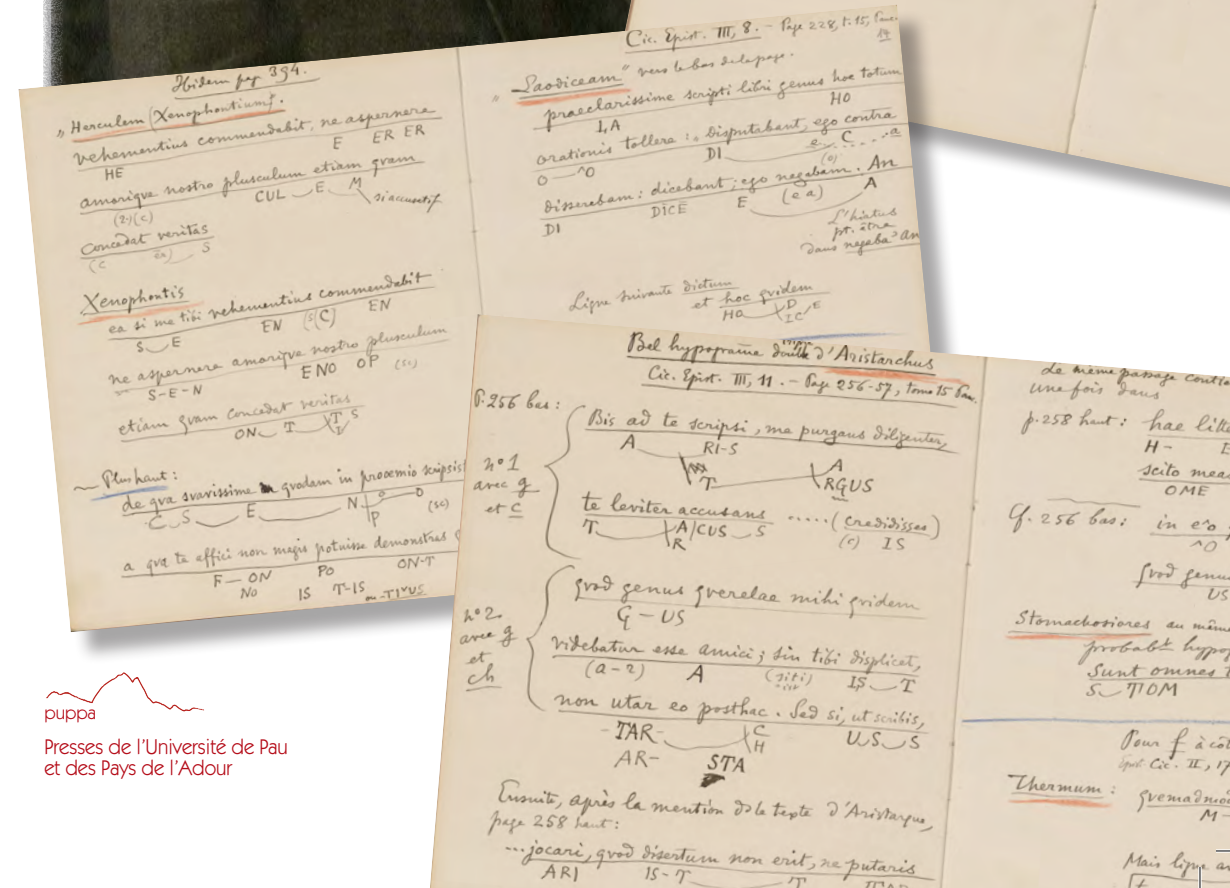 Ibidem pag 394.
„ Herculem (Xenophontium)".
vehementius commendabit, ne aspernere
HE E ER ER
amorique nostro plusculum etiam quam
(2)(c) CUL E M si accusatif
concedat veritas
(c S
Xenophontis
ea si me tibi vehementius commendabit
S E EN (s(C) EN
ne aspernere amorique nostro plusculum
S-E-N ENO OP (si)
etiam quam concedat veritas
ON T T S
I
Plus haut :
de qua suavissime quodam in prooemio scripsisti
C S E N O O (sc)
P
a qua te affici non magis potuisse demonstres
F — ON PO ON-T
NO IS T-IS ou -TIVUS
Cic. Epist. III, 8. - Page 228, t. 15, Panc.
14
„ Laodiceam " vers le bas de la page.
praeclarissime scripti libri genus hoc totum
L, A HO
orationis tollere : „ Disputabant, ego contra
O ^O DI e C a
(o)
disserebam : dicebant ; ego negabam. An
DI DICE E (e a) A
L'hiatus
pt. être
dans negaba^m An
Ligne suivante dictum
et hoc quidem
HO D E
IC
Bel hypogramme double d'Aristarchus
Cic. Epist. III, 11. - Page 256-57, tome 15 Pan.
P. 256 bas :
n° 1
avec g
et C
Bis ad te scripsi, me purgans diligenter,
A RI-S
T A
RGUS
te leviter accusans ..... (credidisses)
T A/CUS S (c) IS
R
n° 2
avec g
et
ch
quod genus querelae mihi quidem
G - US
videbatur esse amici ; sin tibi displicet,
(a-r) A (siti) IS T
non utar eo posthac. Sed si, ut scribis,
- TAR- C US S
H
AR- STA
Ensuite, après la mention de le texte d'Aristarque,
page 258 haut :
...jocari, quod disertum non erit, ne putaris
ARI IS-T T
Le même passage
une fois dans
p. 258 haut : hae
H -
scito mea
OME
Cf. 256 bas : in eo
^O
quod genus
US
Stomachosiores au même
probabt
Sunt omnes
S TOM
Pour f à côté
Epist. Cic. II, 17
Thermum : quemadmod
M -
Mais ligne
puppa
Presses de l'Université de Pau
et des Pays de l'Adour